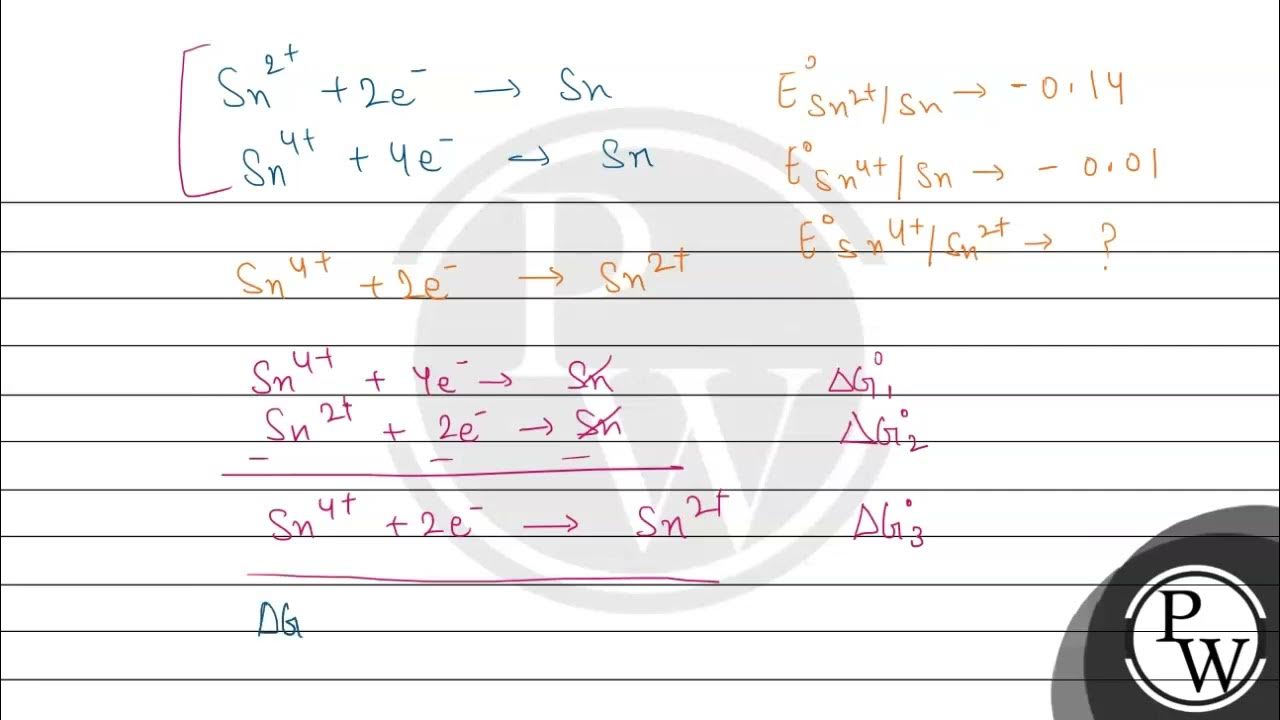 Sn²⁺ + 2e⁻ → Sn E°Sn²⁺/Sn → -0.14
Sn⁴⁺ + 4e⁻ → Sn E°Sn⁴⁺/Sn → -0.01
E°Sn⁴⁺/Sn²⁺ → ?
Sn⁴⁺ + 2e⁻ → Sn²⁺
Sn⁴⁺ + 4e⁻ → Sn ΔG°₁
Sn²⁺ + 2e⁻ → Sn ΔG°₂
− − −
Sn⁴⁺ + 2e⁻ → Sn²⁺ ΔG°₃
ΔG
P
W
P
W